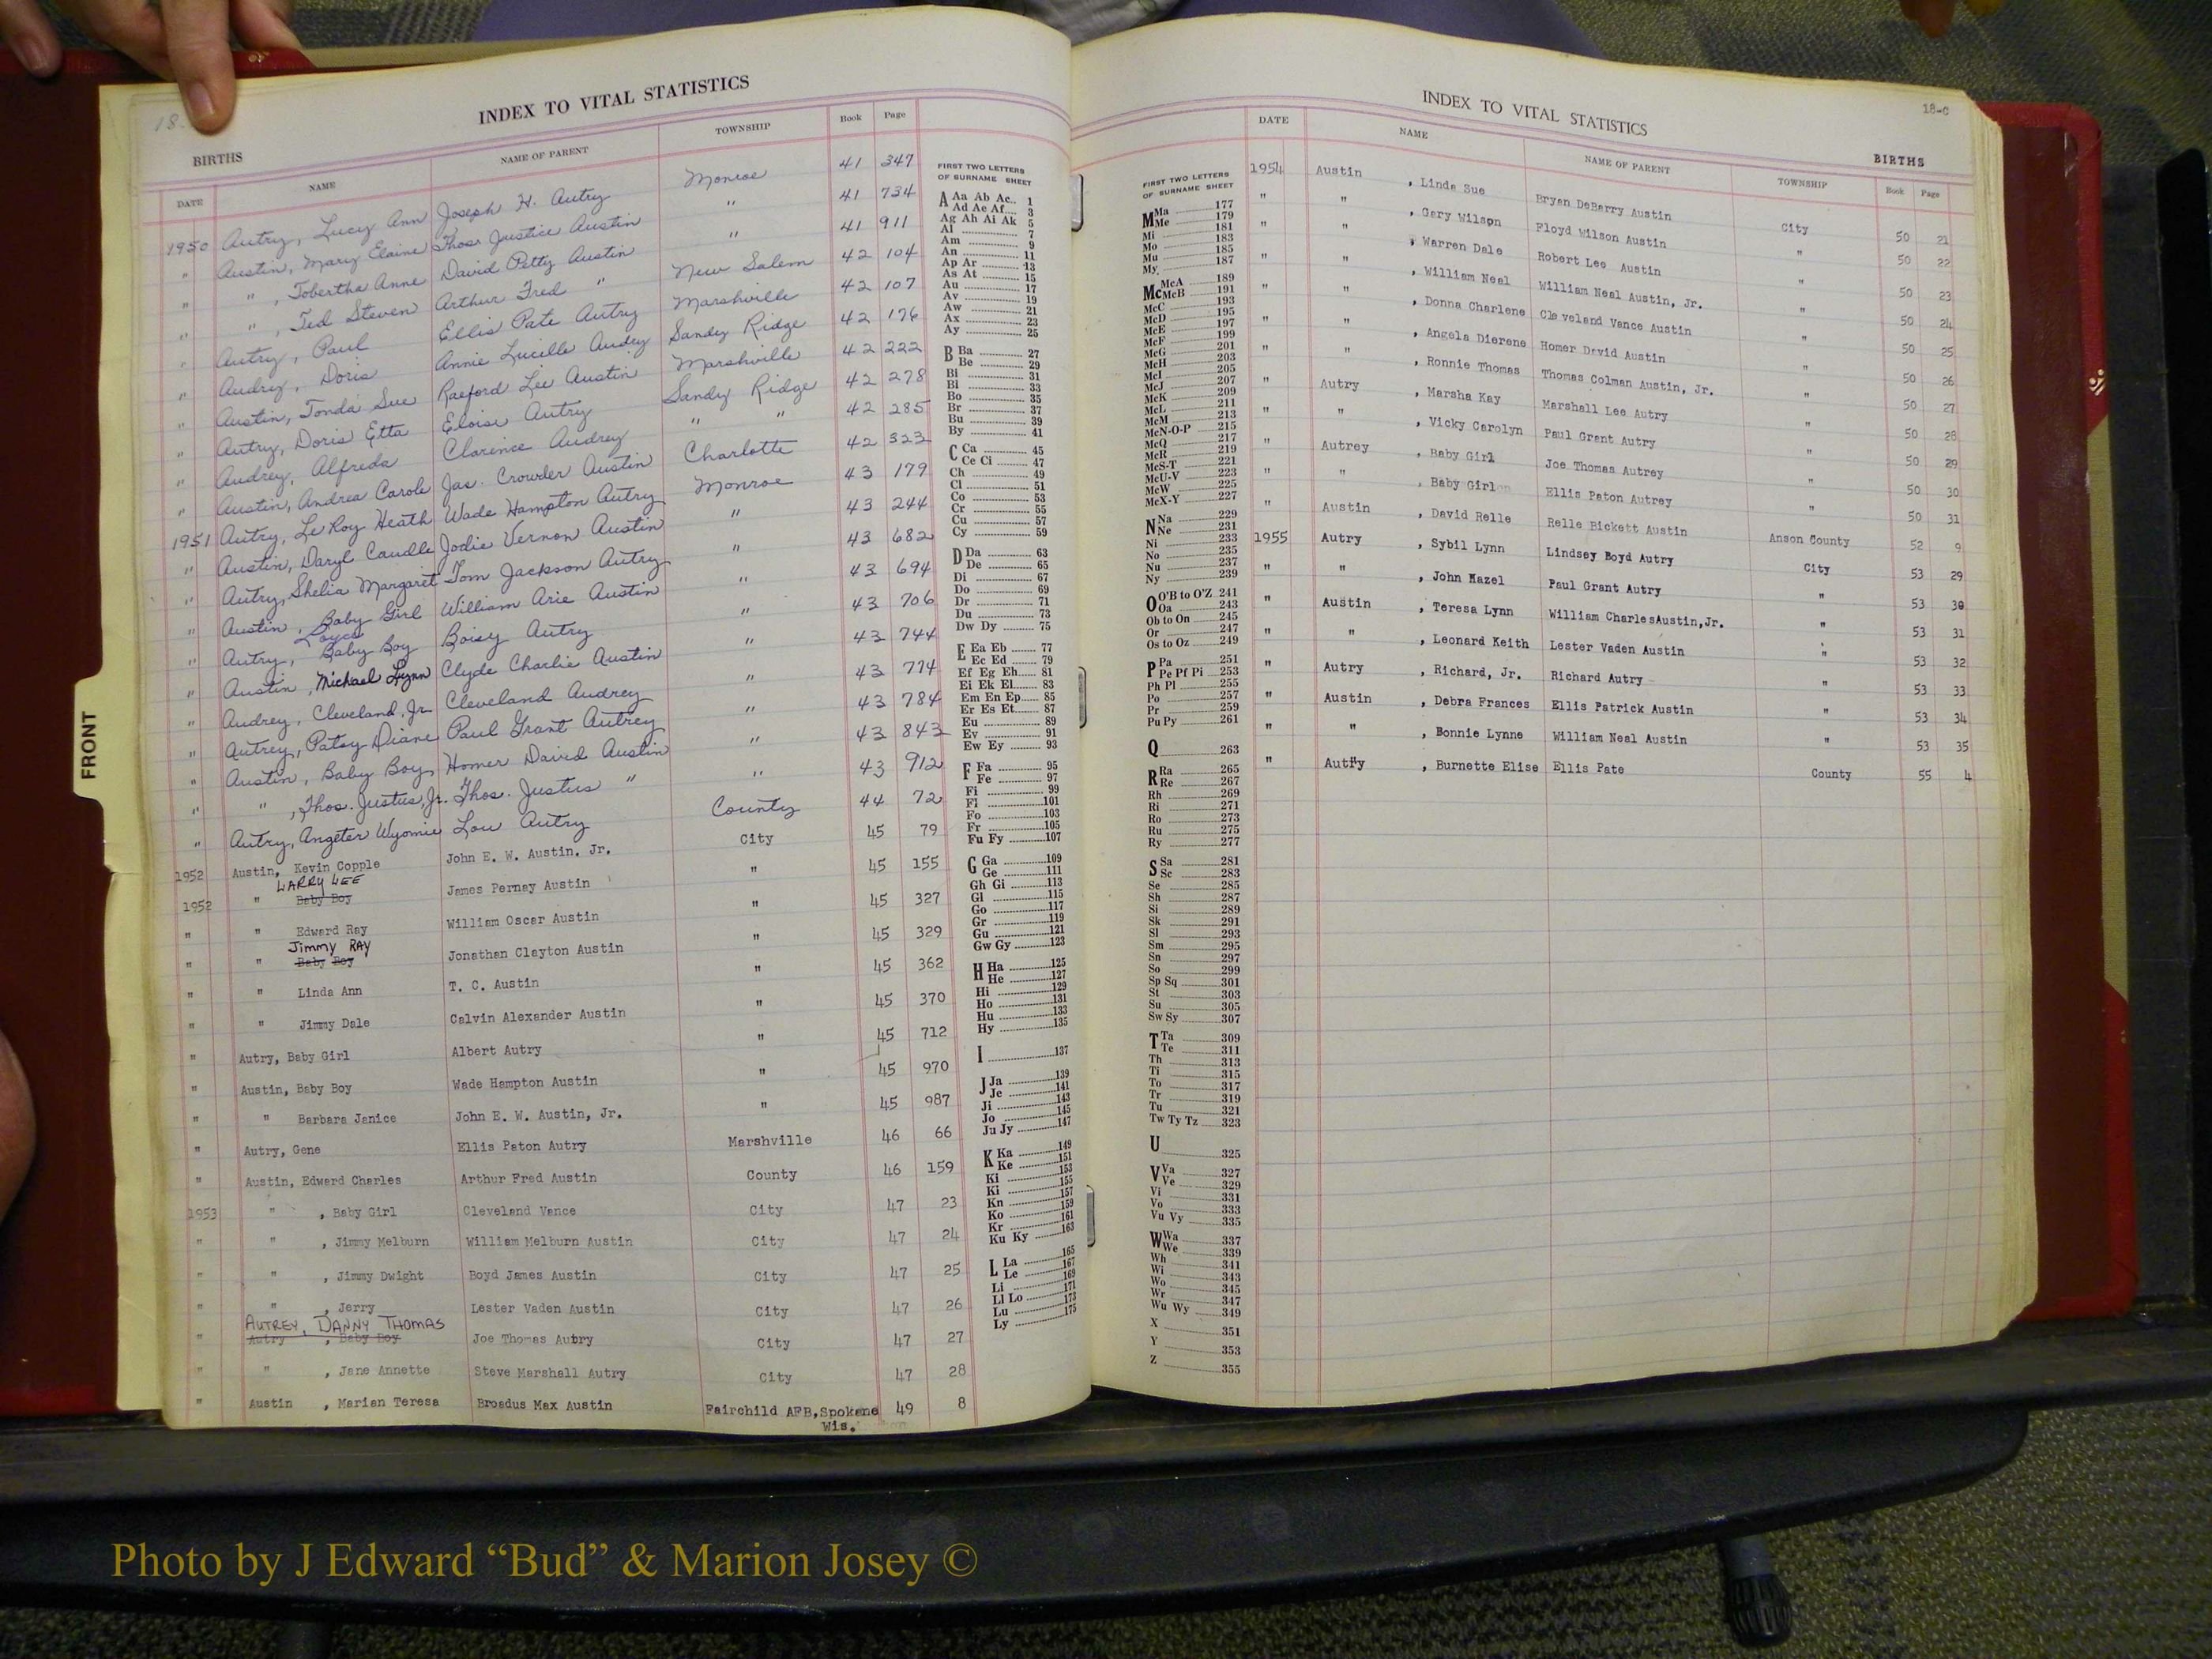 18-
INDEX TO VITAL STATISTICS
BIRTHS
DATE NAME NAME OF PARENT TOWNSHIP Book Page
1950 Autry, Lucy Ann Joseph H. Autry Monroe 41 347
" Austin, Mary Elaine Thos. Justice Austin " 41 734
" " , Tobertha Anne David Petty Austin " 41 911
" " , Ted Steven Arthur Fred " New Salem 42 104
" Autry, Paul Ellis Pate Autry Marshville 42 107
" Audry, Doris Annie Lucille Audry Sandy Ridge 42 176
" Austin, Tonda Sue Raeford Lee Austin Marshville 42 222
" Autry, Doris Etta Eloise Autry Sandy Ridge 42 278
" Audrey, Alfreda Clarence Audrey " " 42 285
" Austin, Andrea Carole Jas. Crowder Austin Charlotte 42 323
1951 Autry, Le Roy Heath Wade Hampton Autry Monroe 43 179
" Austin, Daryl Caudle Jodie Vernon Austin " 43 244
" Autry, Shelia Margaret Tom Jackson Autry " 43 682
" Austin, Baby Girl William Arie Austin " 43 694
" Autry, Baby Boy Boisy Autry " 43 706
" Austin, Michael Lynn Clyde Charlie Austin " 43 744
" Audrey, Cleveland, Jr. Cleveland Audrey " 43 774
" Autrey, Patsy Diane Paul Grant Autrey " 43 784
" Austin, Baby Boy Homer David Austin " 43 843
" " , Thos. Justus, Jr. Thos. Justus " " 43 912
" Autry, Angeter Wyomie Lou Autry County 44 72
1952 Austin, Kevin Copple John E. W. Austin, Jr. City 45 79
LARRY LEE
1952 " Baby Boy James Perney Austin " 45 155
" " Edward Ray William Oscar Austin " 45 327
Jimmy RAY
" " Baby Boy Jonathan Clayton Austin " 45 329
" " Linda Ann T. C. Austin " 45 362
" " Jimmy Dale Calvin Alexander Austin " 45 370
" Autry, Baby Girl Albert Autry " 45 712
" Austin, Baby Boy Wade Hampton Austin " 45 970
" " Barbara Janice John E. W. Austin, Jr. " 45 987
" Autry, Gene Ellis Paton Autry Marshville 46 66
" Austin, Edward Charles Arthur Fred Austin County 46 159
1953 " , Baby Girl Cleveland Vance City 47 23
" " , Jimmy Melburn William Melburn Austin City 47 24
" " , Jimmy Dwight Boyd James Austin City 47 25
" " , Jerry Lester Vaden Austin City 47 26
AUTREY, DANNY THOMAS
" Autry , Baby Boy Joe Thomas Autry City 47 27
" " , Jane Annette Steve Marshall Autry City 47 28
" Austin , Marian Teresa Broadus Max Austin Fairchild AFB, Spokane 49 8
Wis.
FIRST TWO LETTERS
OF SURNAME SHEET
A Aa Ab Ac 1
Ad Ae Af 3
Ag Ah Ai Ak 5
Al 7
Am 9
An 11
Ap Ar 13
As At 15
Au 17
Av 19
Aw 21
Ax 23
Ay 25
B Ba 27
Be 29
Bi 31
Bl 33
Bo 35
Br 37
Bu 39
By 41
C Ca 45
Ce Ci 47
Ch 49
Cl 51
Co 53
Cr 55
Cu 57
Cy 59
D Da 63
De 65
Di 67
Do 69
Dr 71
Du 73
Dw Dy 75
E Ea Eb 77
Ec Ed 79
Ef Eg Eh 81
Ei Ek El 83
Em En Ep 85
Er Es Et 87
Eu 89
Ev 91
Ew Ey 93
F Fa 95
Fe 97
Fi 99
Fl 101
Fo 103
Fr 105
Fu Fy 107
G Ga 109
Ge 111
Gh Gi 113
Gl 115
Go 117
Gr 119
Gu 121
Gw Gy 123
H Ha 125
He 127
Hi 129
Ho 131
Hu 133
Hy 135
I 137
J Ja 139
Je 141
Ji 143
Jo 145
Ju Jy 147
K Ka 149
Ke 151
Ki 153
Ki 155
Kn 157
Ko 159
Kr 161
Ku Ky 163
L La 165
Le 167
Li 169
Ll Lo 171
Lu 173
Ly 175
FRONT
18-C
INDEX TO VITAL STATISTICS
BIRTHS
DATE NAME NAME OF PARENT TOWNSHIP Book Page
1954 Austin , Linda Sue Bryan DeBarry Austin City 50 21
" " , Gary Wilson Floyd Wilson Austin " 50 22
" " , Warren Dale Robert Lee Austin " 50 23
" " , William Neal William Neal Austin, Jr. " 50 24
" " , Donna Charlene Cleveland Vance Austin " 50 25
" " , Angela Dierene Homer David Austin " 50 26
" " , Ronnie Thomas Thomas Colman Austin, Jr. " 50 27
" Autry , Marsha Kay Marshall Lee Autry " 50 28
" " , Vicky Carolyn Paul Grant Autry " 50 29
" Autrey , Baby Girl Joe Thomas Autrey " 50 30
" " , Baby Girl Ellis Paton Autrey " 50 31
" Austin , David Relle Relle Bickett Austin Anson County 52 9
1955 Autry , Sybil Lynn Lindsey Boyd Autry City 53 29
" " , John Hazel Paul Grant Autry " 53 30
" Austin , Teresa Lynn William Charles Austin, Jr. " 53 31
" " , Leonard Keith Lester Vaden Austin " 53 32
" Autry , Richard, Jr. Richard Autry " 53 33
" Austin , Debra Frances Ellis Patrick Austin " 53 34
" " , Bonnie Lynne William Neal Austin " 53 35
" Autry , Burnette Elise Ellis Pate County 55 4
FIRST TWO LETTERS
OF SURNAME SHEET
M Ma 177
Me 179
Mi 181
Mo 183
Mu 185
My 187
Mc McA 189
McB 191
McC 193
McD 195
McE 197
McF 199
McG 201
McH 203
McI 205
McJ 207
McK 209
McL 211
McM 213
McN-O-P 215
McQ 217
McR 219
McS-T 221
McU-V 223
McW 225
McX-Y 227
N Na 229
Ne 231
Ni 233
No 235
Nu 237
Ny 239
O O'B to O'Z 241
Oa 243
Ob to On 245
Or 247
Os to Oz 249
P Pa 251
Pe Pf Pi 253
Ph Pl 255
Po 257
Pr 259
Pu Py 261
Q 263
R Ra 265
Re 267
Rh 269
Ri 271
Ro 273
Ru 275
Ry 277
S Sa 281
Sc 283
Se 285
Sh 287
Si 289
Sk 291
Sl 293
Sm 295
Sn 297
So 299
Sp Sq 301
St 303
Su 305
Sw Sy 307
T Ta 309
Te 311
Th 313
Ti 315
To 317
Tr 319
Tu 321
Tw Ty Tz 323
U 325
V Va 327
Ve 329
Vi 331
Vo 333
Vu Vy 335
W Wa 337
We 339
Wh 341
Wi 343
Wo 345
Wr 347
Wu Wy 349
X 351
Y 353
Z 355
Photo by J Edward “Bud” & Marion Josey ©